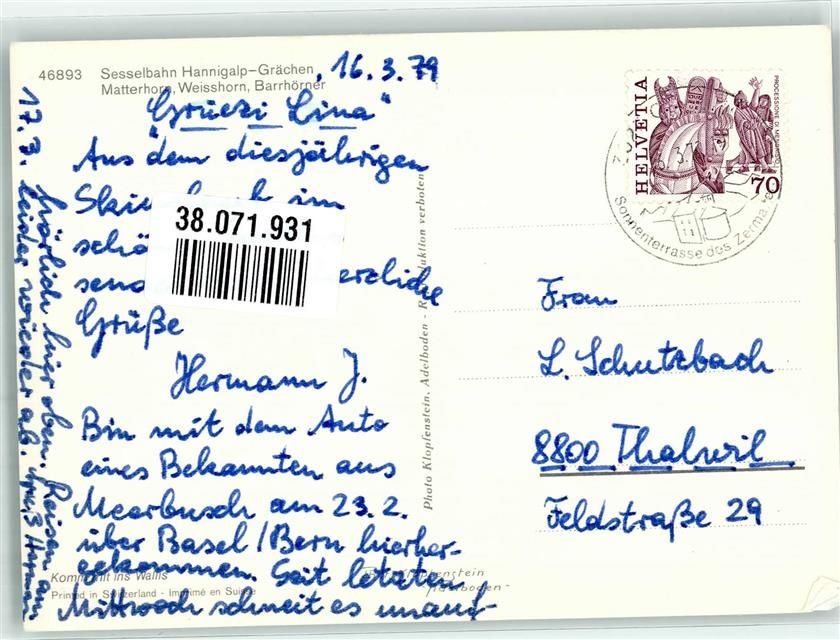 46893 Sesselbahn Hannigalp-Grächen
Matterhorn, Weisshorn, Barrhörner
, 16.3.79
"Grüezi Lina"
Aus dem diesjährigen
im
38.071.931
herzliche
Grüße
Hermann J.
Bin mit dem Auto
eines Bekannten aus
Meerbusch am 23.2.
über Basel/Bern hierher-
gekommen. Seit letzten
Mittwoch schneit es unauf-
17.3. herrlich hier oben. Reisen am
leider wieder ab. Gruß Hermann
Komm mit ins Wallis
Printed in Switzerland - Imprimé en Suisse
Foto Klopfenstein
Adelboden
Photo Klopfenstein, Adelboden - Reproduktion verboten
HELVETIA
PROCESSIONE DI MENDRISIO
70
Sonnenterrasse des Zermatt
Frau
L. Schutzbach
8800 Thalwil
Feldstraße 29